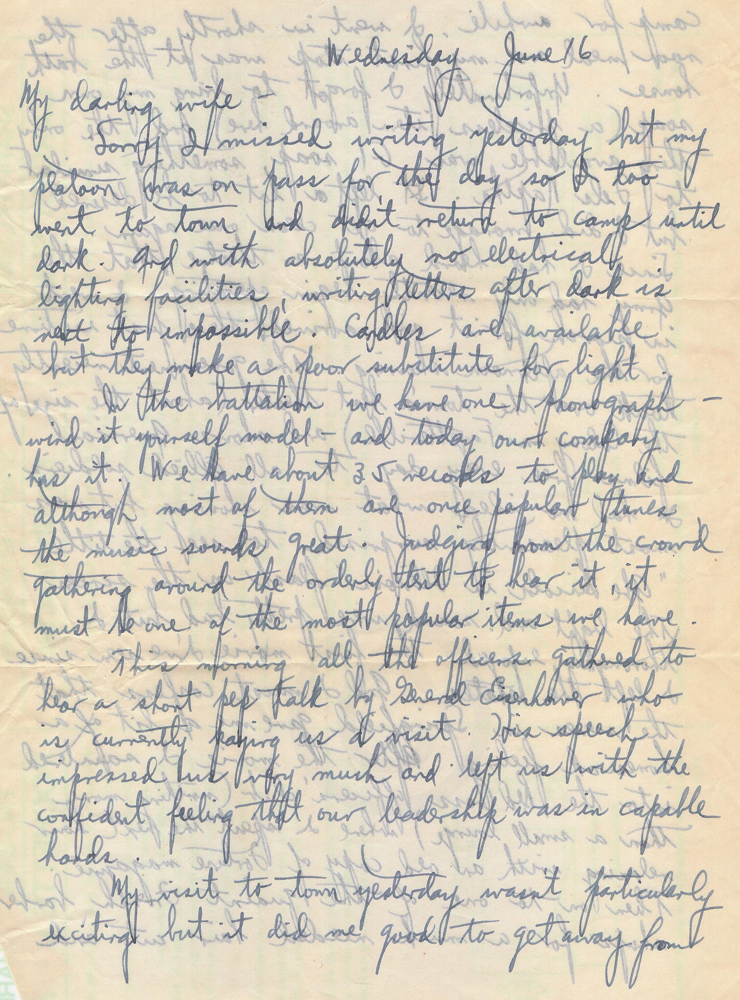 Wednesday June 16
My darling wife -
Sorry I missed writing yesterday but my
platoon was on pass for the day so I too
went to town and didn't return to camp until
dark. And with absolutely no electrical
lighting facilities, writing letters after dark is
next to impossible. Candles are available
but they make a poor substitute for light.
In the battalion we have one phonograph -
wind it yourself model - and today our company
has it. We have about 35 records to play and
although most of them are once popular tunes
the music sounds great. Judging from the crowd
gathering around the orderly tent to hear it, it
must be one of the most popular items we have.
This morning all the officers gathered to
hear a short pep talk by General Eisenhower who
is currently paying us a visit. His speech
impressed us very much and left us with the
confident feeling that our leadership was in capable
hands.
My visit to town yesterday wasn't particularly
exciting but it did me good to get away from